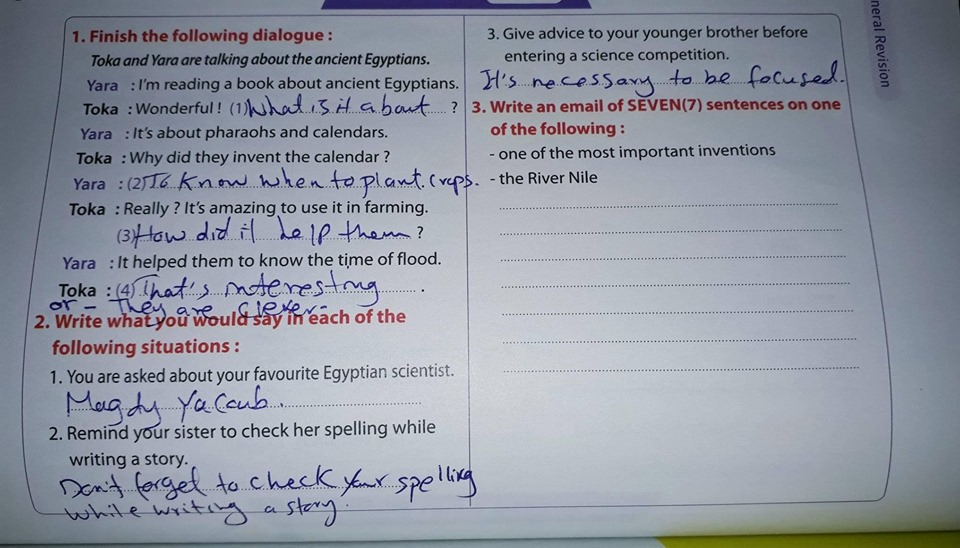 1. Finish the following dialogue :
Toka and Yara are talking about the ancient Egyptians.
Yara : I'm reading a book about ancient Egyptians.
Toka : Wonderful! (1) What is it about ?
Yara : It's about pharaohs and calendars.
Toka : Why did they invent the calendar ?
Yara : (2) To know when to plant crops.
Toka : Really ? It's amazing to use it in farming.
(3) How did it help them ?
Yara : It helped them to know the time of flood.
Toka : (4) That's interesting .
or - They are clever -
2. Write what you would say in each of the
following situations :
1. You are asked about your favourite Egyptian scientist.
Magdy Yacoub.
2. Remind your sister to check her spelling while
writing a story.
Don't forget to check your spelling
while writing a story.
3. Give advice to your younger brother before
entering a science competition.
It's necessary to be focused.
3. Write an email of SEVEN(7) sentences on one
of the following :
- one of the most important inventions
- the River Nile
neral Revision